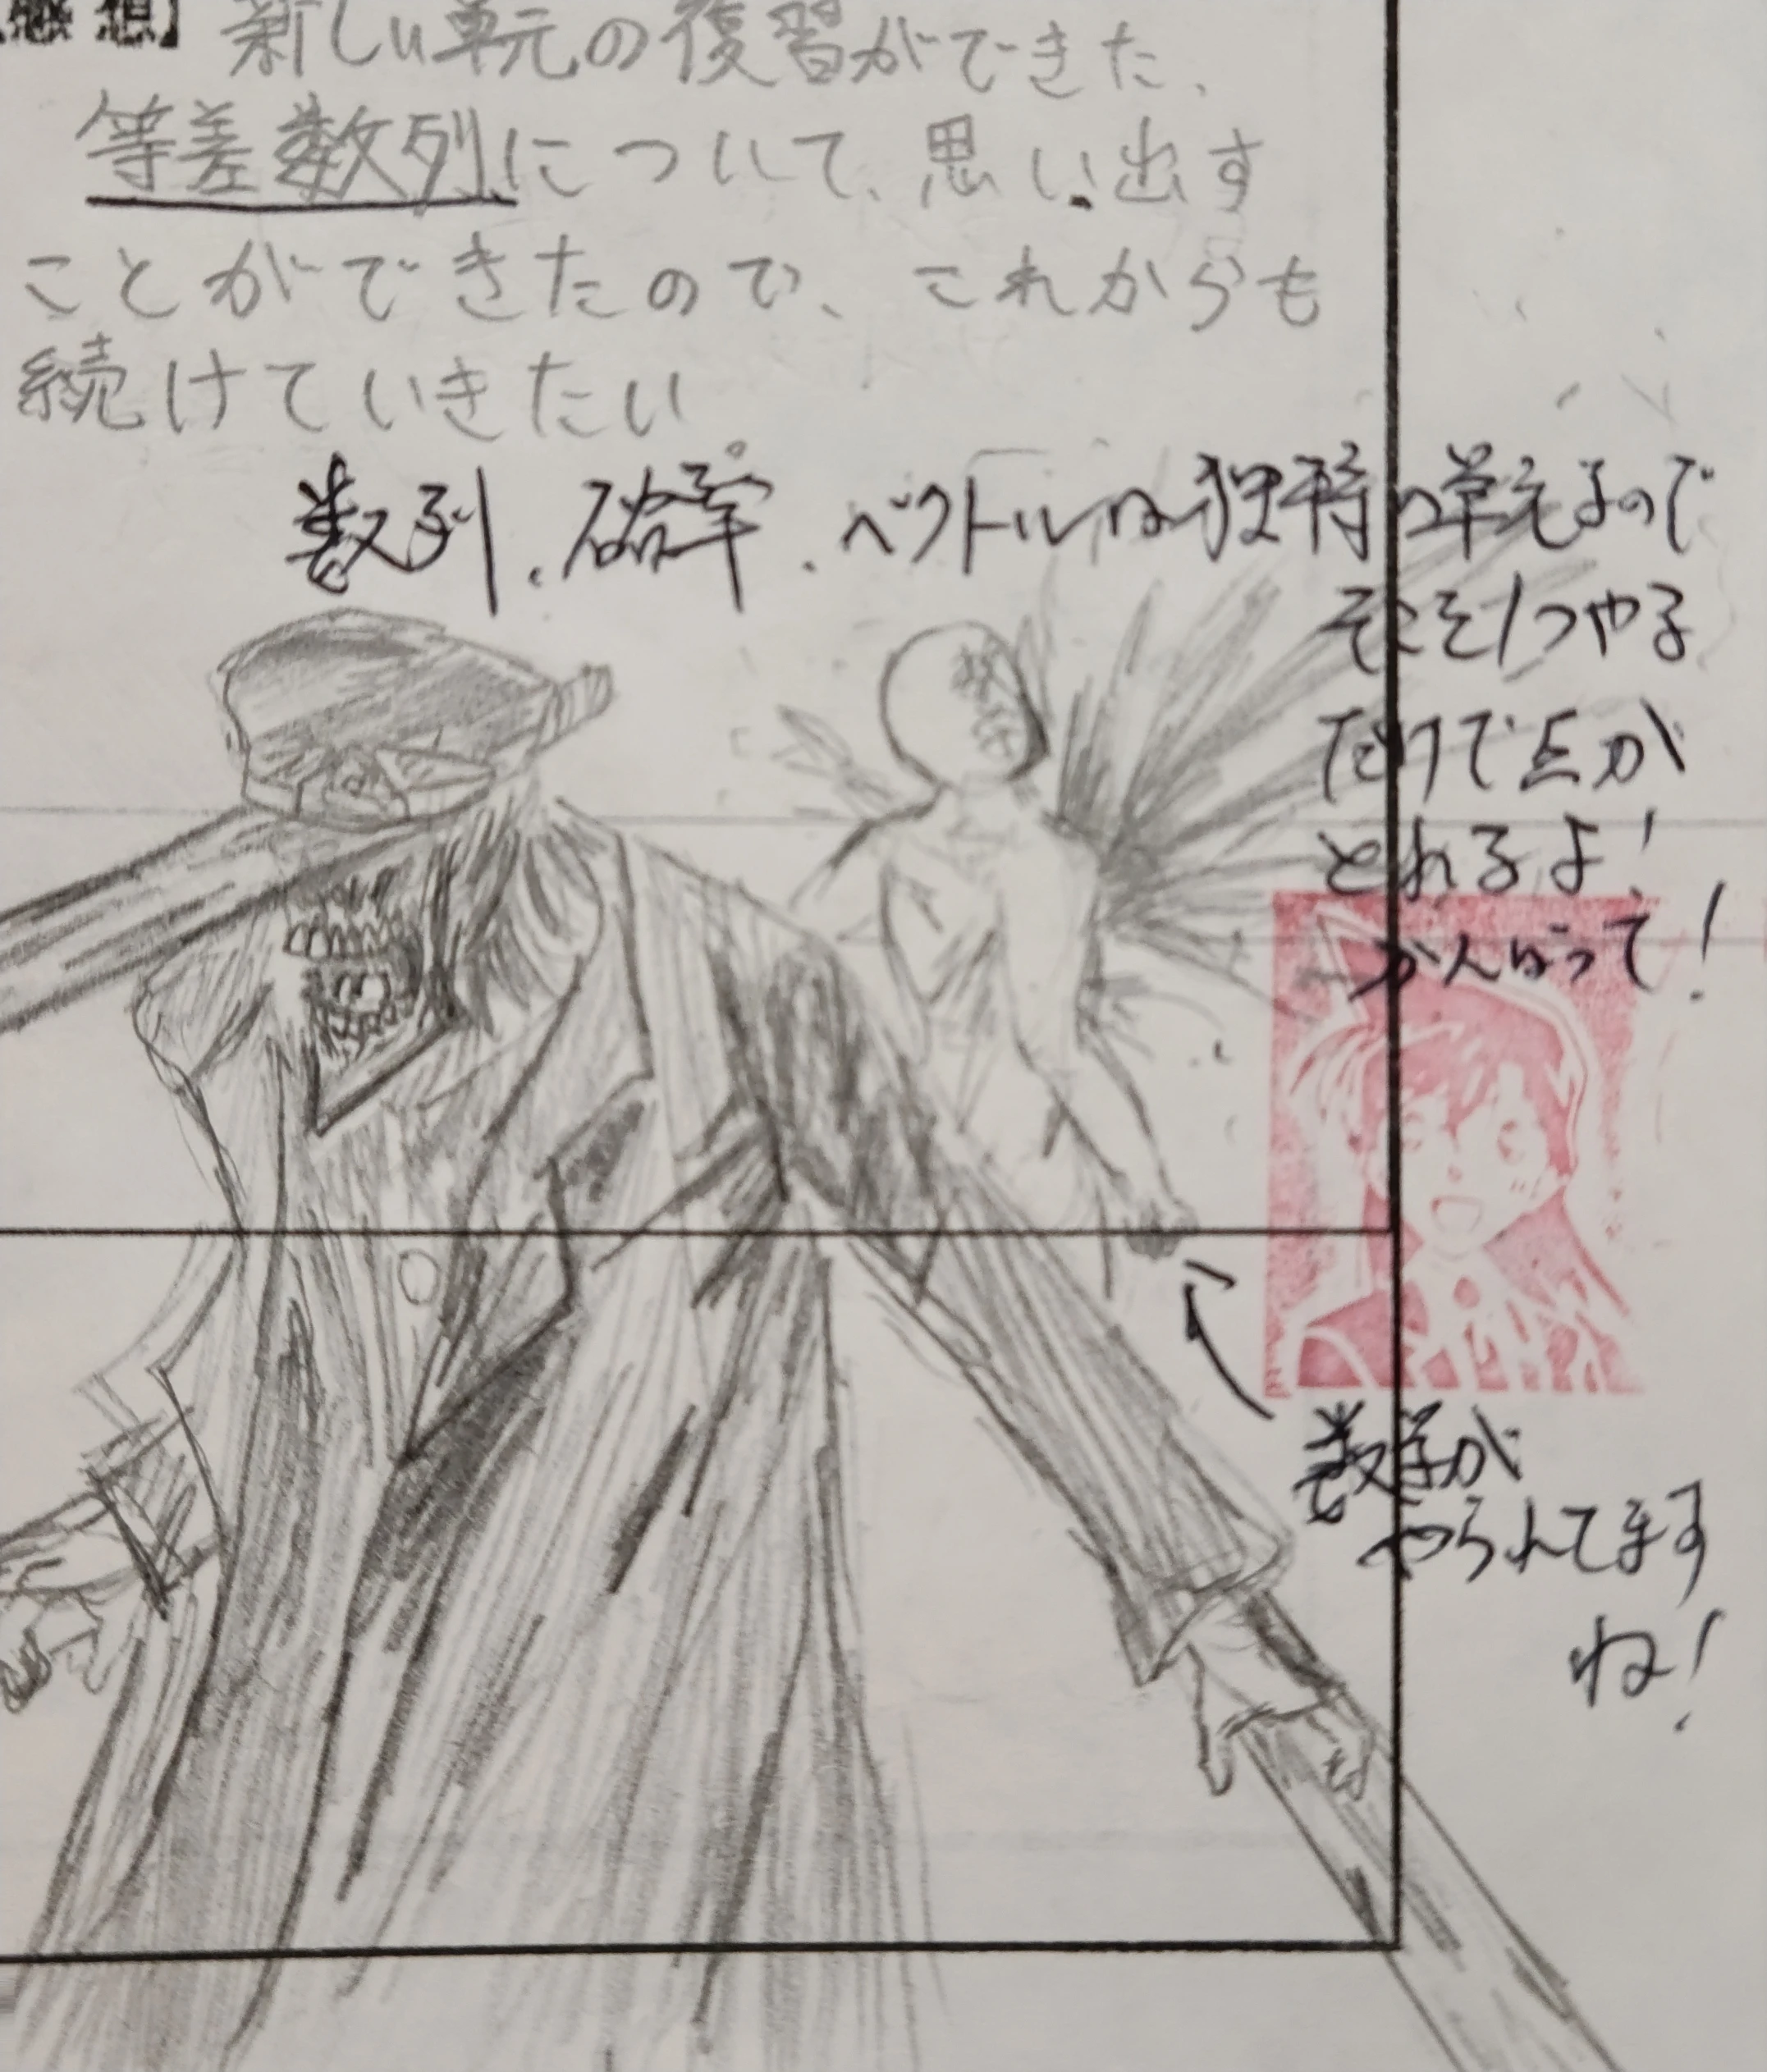 感想】 新しい単元の復習ができた、
等差数列について、思い出す
ことができたので、これからも
続けていきたい
数列、確率、ベクトルは独特な単元なので
そこを1つやる
だけで点が
とれるよ!
がんばって!
数学
数学が
やられてます
ね!